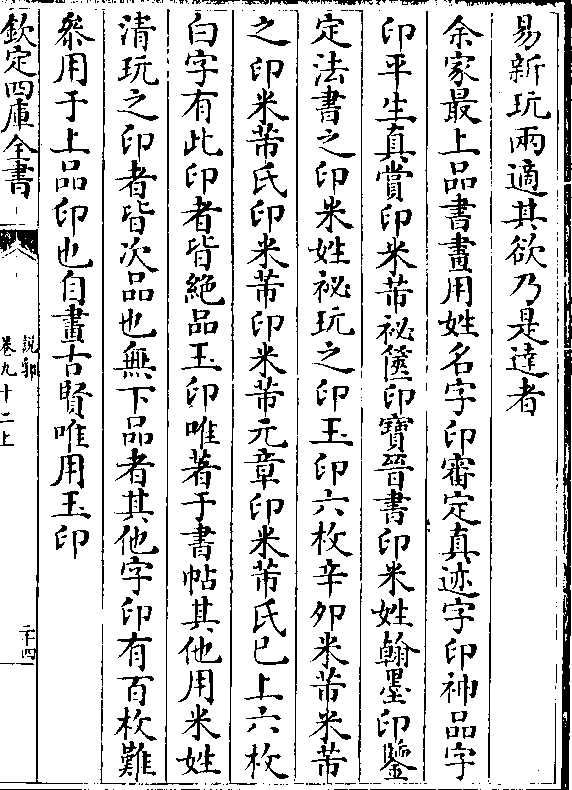 易新玩兩適其欲乃是達者
余家最上品書畫用姓名字印審定真迹字印神品字
印平生真賞印米芾祕篋印寶晉書印米姓翰墨印鑒
定法書之印米姓祕玩之印玉印六枚辛卯米芾米芾
之印米芾氏印米芾印米芾元章印米芾氏已上六枚
白字有此印者皆絶品玉印唯著于書帖其他用米姓
清玩之印者皆次品也無下品者其他字印有百枚難
叅用于上品印也自畫古賢唯用玉印
欽定四庫全書
說郛
卷九十二上
二十四